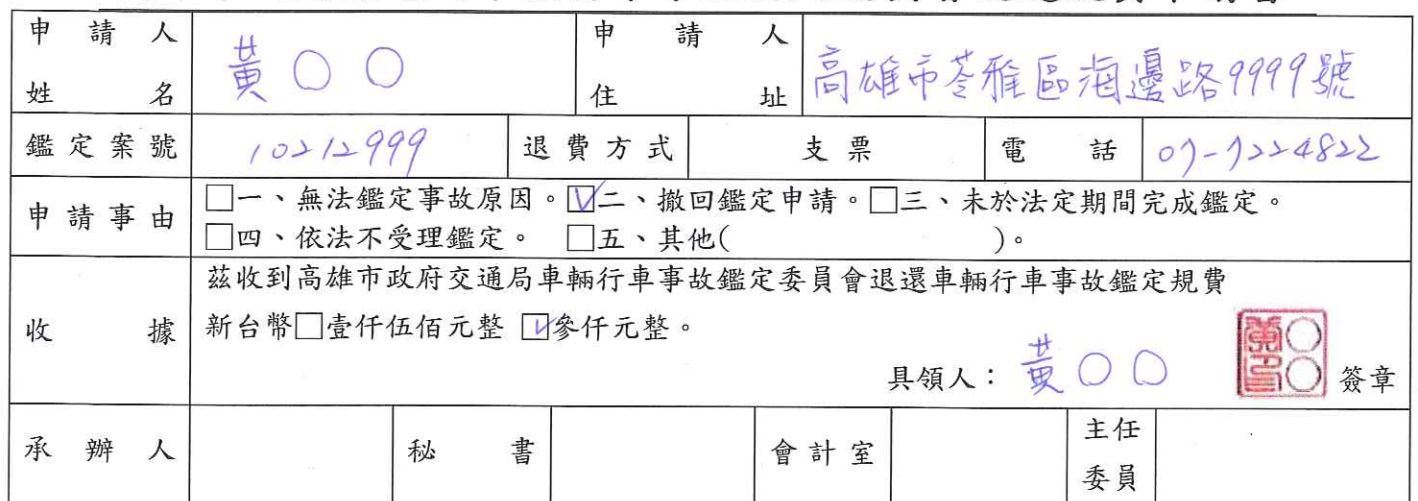 申請人姓名 黃○○ 申請人住址 高雄市苓雅區海邊路9999號
鑑定案號 10212999 退費方式 支票 電話 07-7224822
申請事由 □一、無法鑑定事故原因。☑二、撤回鑑定申請。□三、未於法定期間完成鑑定。
□四、依法不受理鑑定。 □五、其他( )。
茲收到高雄市政府交通局車輛行車事故鑑定委員會退還車輛行車事故鑑定規費
收據 新台幣□壹仟伍佰元整 ☑參仟元整。
具領人：黃○○ 簽章
承辦人 秘書 會計室 主任委員